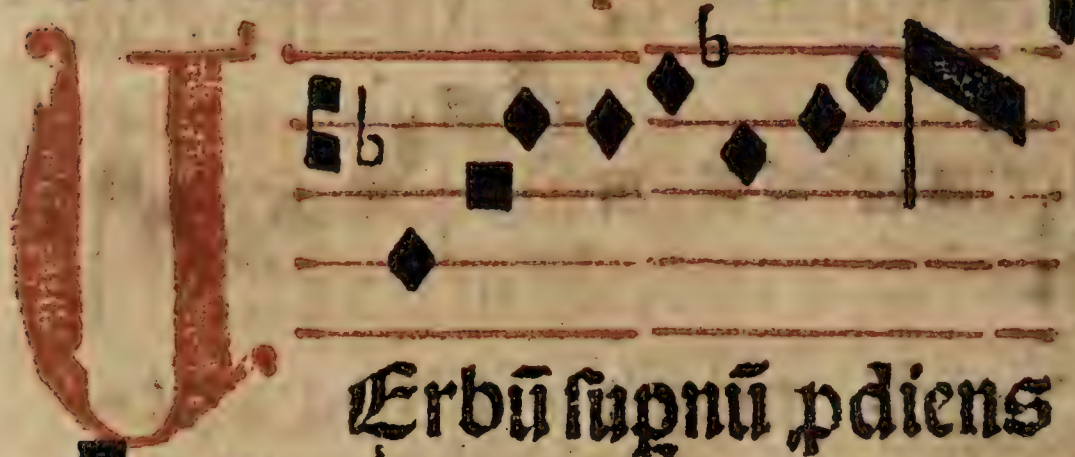 VErbū supnū pdiens